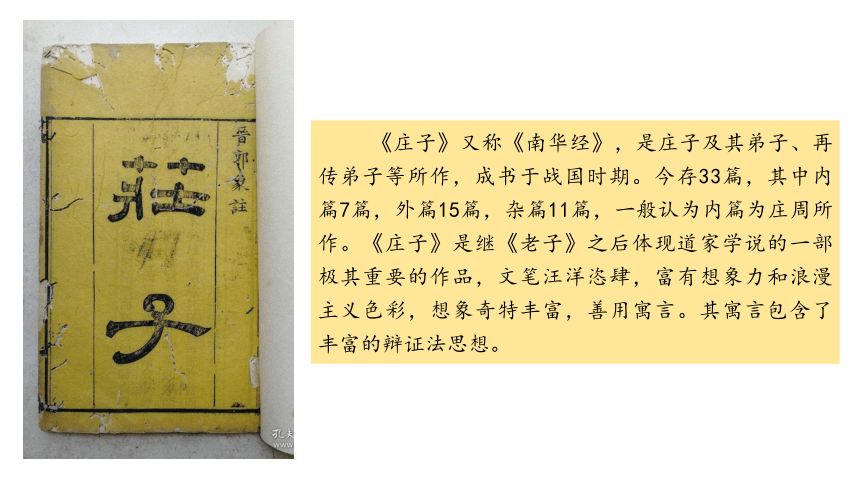 晋郭象註
莊子
孔夫
www.
《庄子》又称《南华经》，是庄子及其弟子、再
传弟子等所作，成书于战国时期。今存33篇，其中内
篇7篇，外篇15篇，杂篇11篇，一般认为内篇为庄周所
作。《庄子》是继《老子》之后体现道家学说的一部
极其重要的作品，文笔汪洋恣肆，富有想象力和浪漫
主义色彩，想象奇特丰富，善用寓言。其寓言包含了
丰富的辩证法思想。